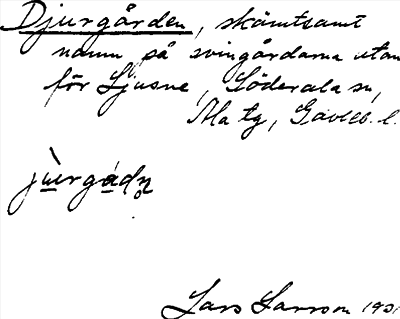 Djurgården, skämtsamt
namn på svingårdarna utan
för Ljusne, Söderala sn,
Ala tg, Gävleb. l.
jùrgádn̥
Lars Larsson 1931